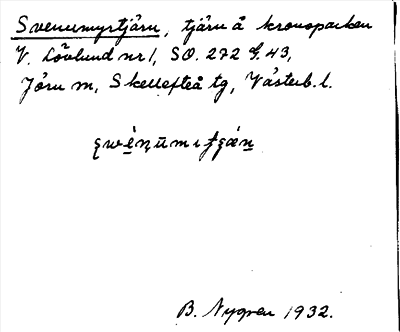 Svenumyrtjärn, tjärn å kronoparken
V. Lövlund nr 1, SO. 272 G. 43,
Jörn m, Skellefteå tg, Västerb. l.
B. Nygren 1932.